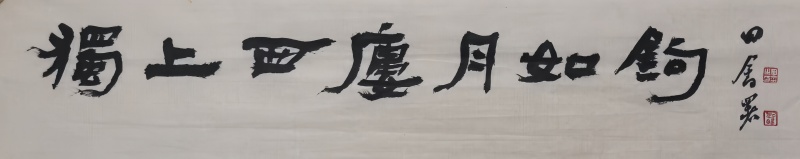 獨上西廔月如鉤
田舍署